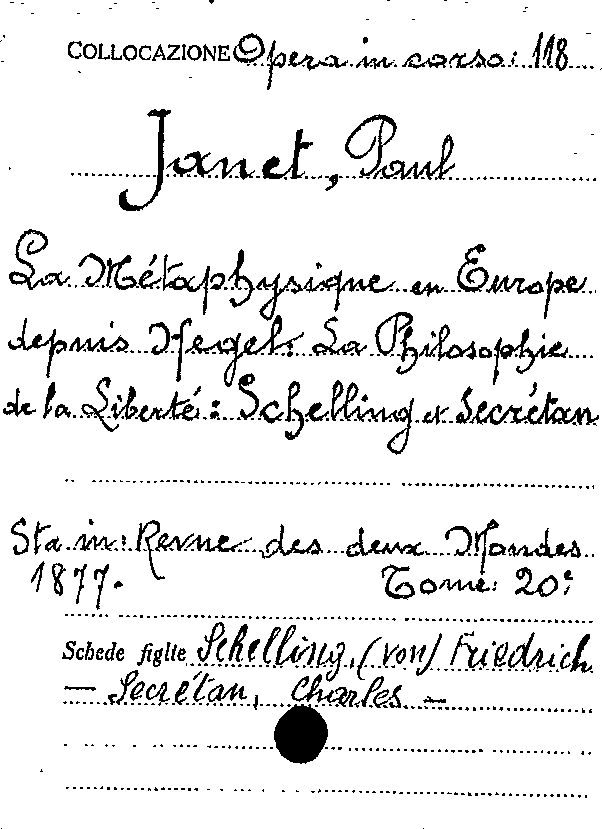 COLLOCAZIONE Opera in corso: 118
Janet, Paul
La Métaphysique en Europe
depuis Hegel. La Philosophie
de la Liberté: Schelling et Secrétan
Sta in: Revue des deux Mondes
1877. Tome: 20e
Schede figlie Schelling, (von) Friedrich
— Secrétan, Charles —